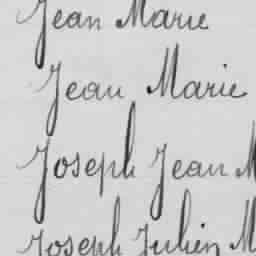 Jean Marie
Jean Marie
Joseph Jean M
Joseph Julien M